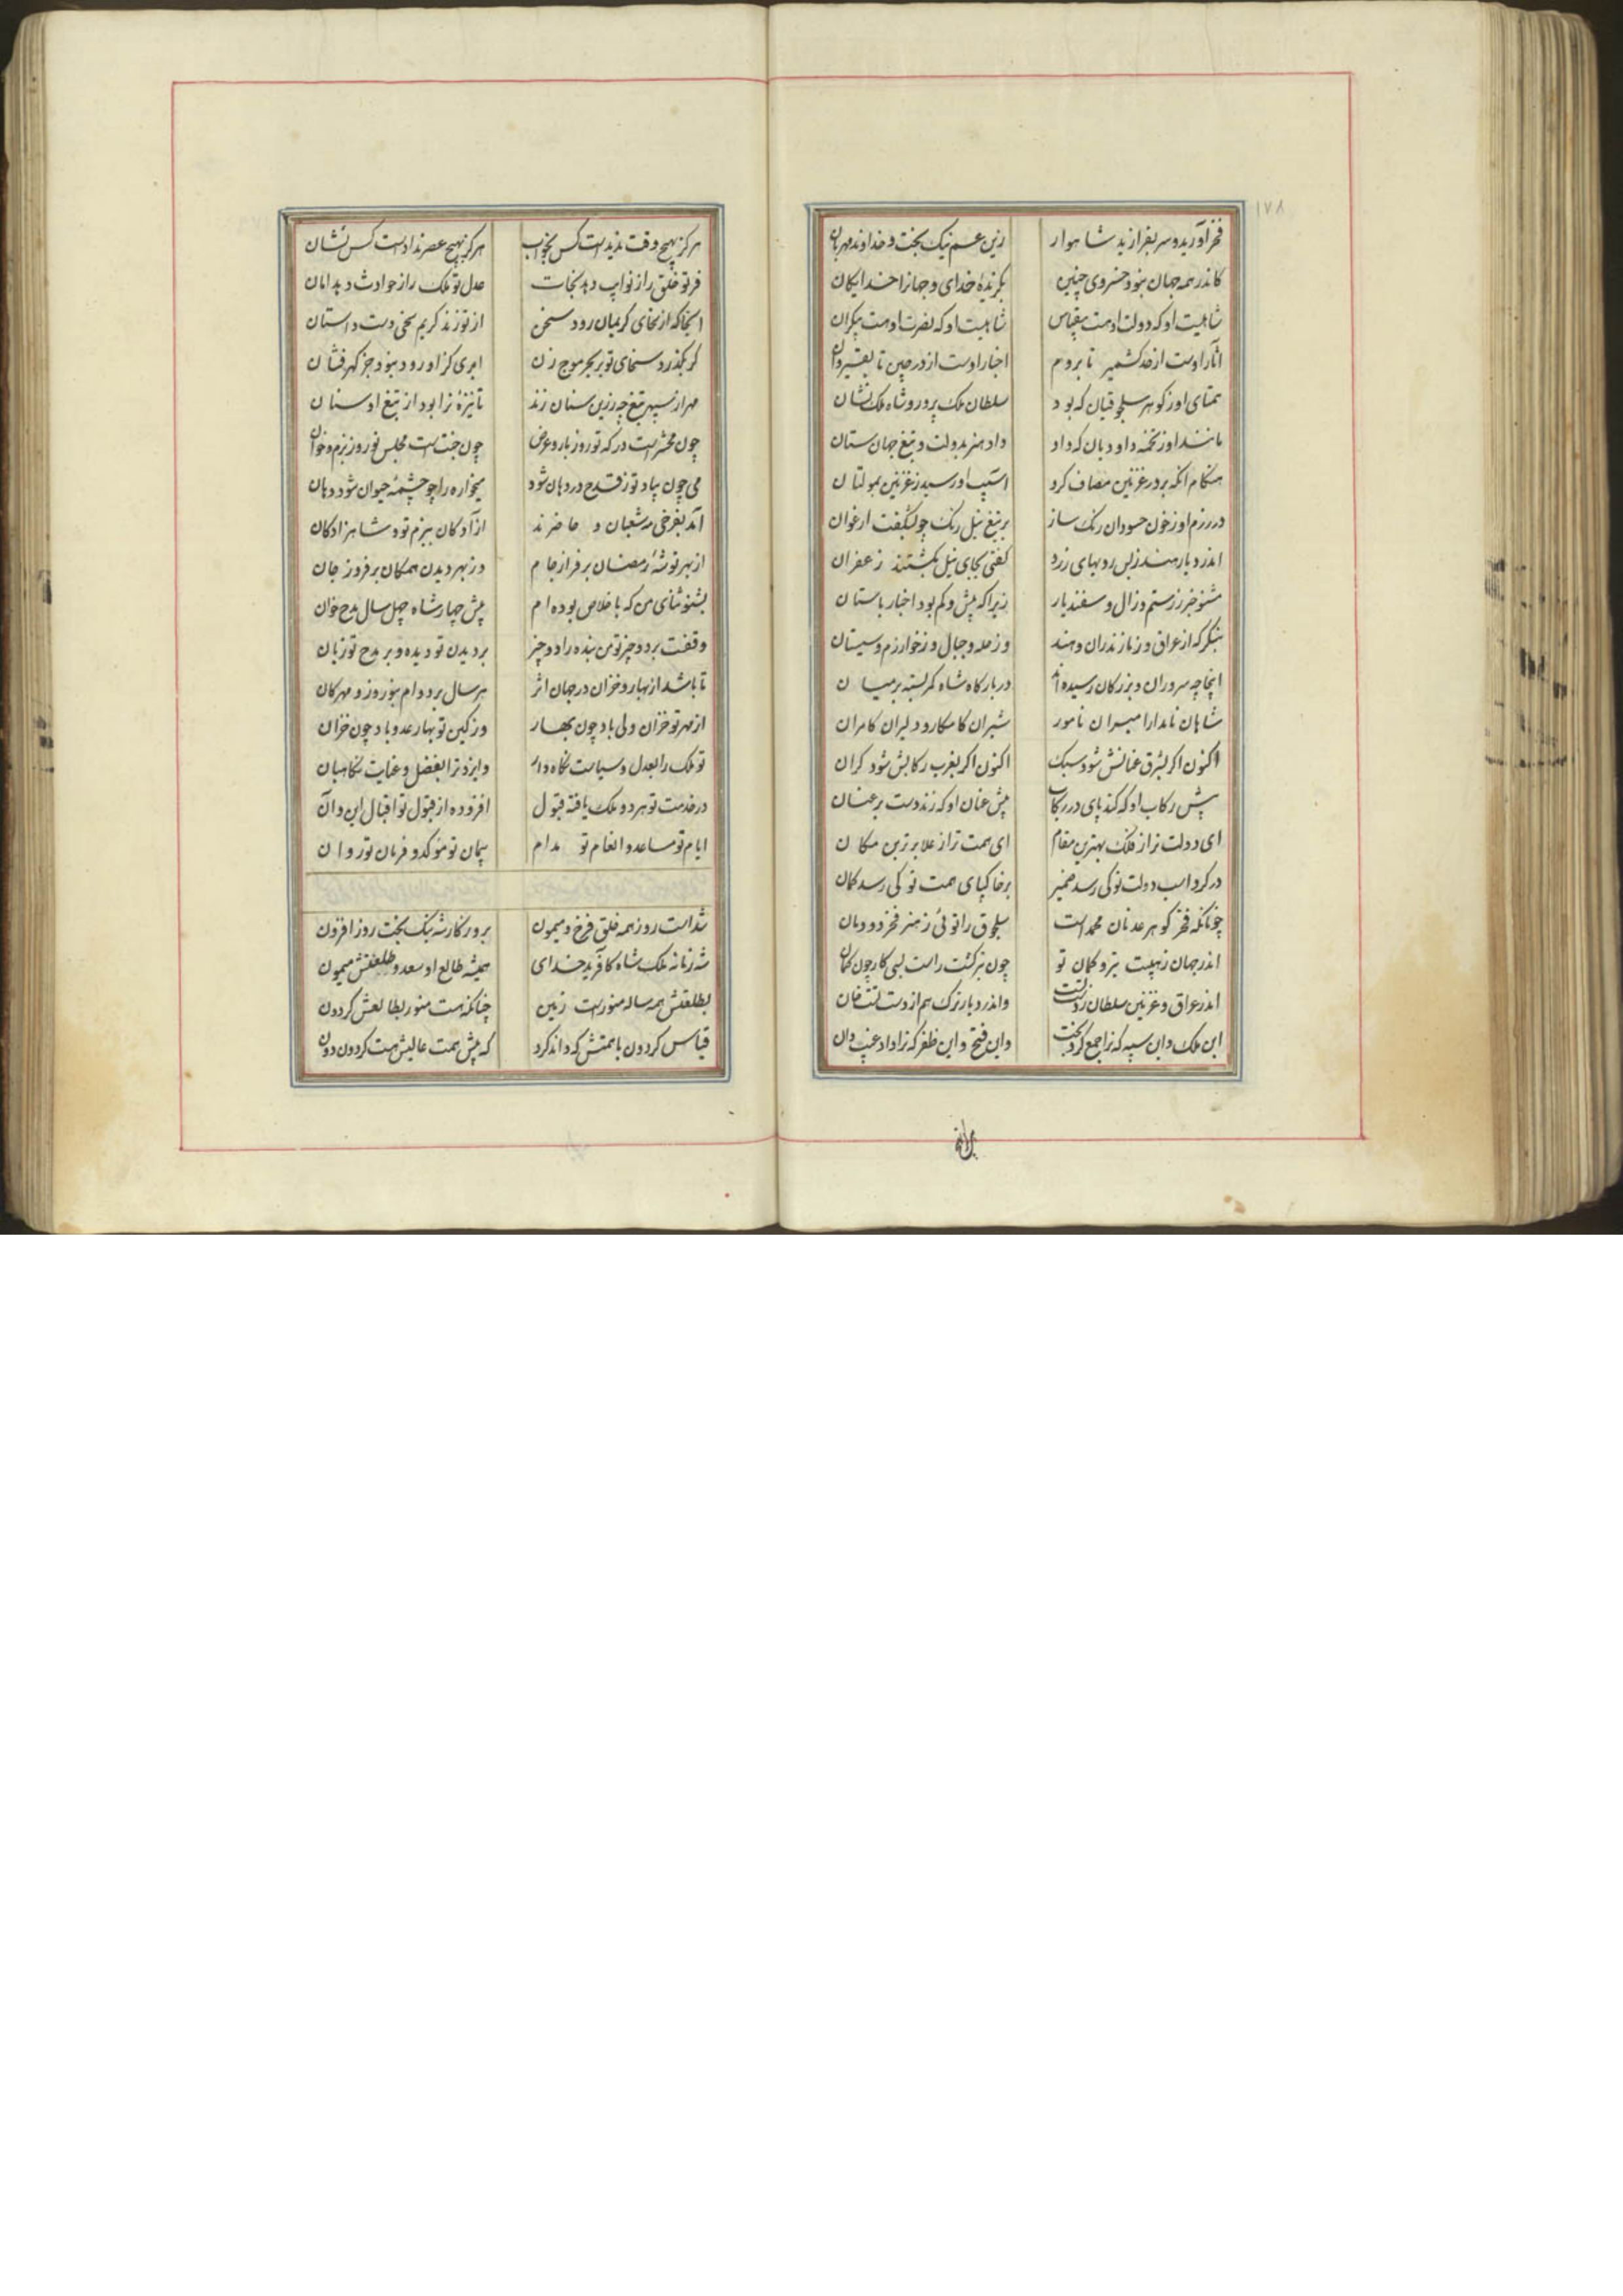 ۱۷۸
فخر آورید و سر بفرازید شاهوار زین عم نیک بخت و خداوند مهربان
کاندر همه جهان نبود خسروی چنین بگزیدهٔ خدای و جهانرا خدایگان
شاهیست او که دولت اوهست بیقیاس شاهیست او که نصرت اوهست بیکران
آثار اوست از حد کشمیر تا بروم اخبار اوست از در چین تا بقیروان
همتای او ز گوهر سلجوقیان که بود سلطان ملک پرور و شاه ملک نشان
مانند او ز تخمه داودیان که داد داد هنر بدولت و تیغ جهان ستان
هنگام آنکه بر در غزنین مصاف کرد آسیب او رسید ز غزنین بمولتان
در رزم او ز خون حسودان رنگ ساز بر تیغ نیل رنگ چو بشکفت ارغوان
اندر دیار هند ز بس رویهای زرد گفتی بجای نیل بکشتند زعفران
مشنو خبر ز رستم و زال و سفندیار زیرا که بیش و کم بود اخبار باستان
بنگر که از عراق و ز مازندران و هند وز مله و جبال و ز خوارزم و سیستان
اینجا چه سروران و بزرگان رسیده‌اند در بارگاه شاه کمر بسته بر میان
شاهان نامدار امیران نامور شیران کامکار و دلیران کامران
اکنون اگر بشرق عنانش شود سبک اکنون اگر بغرب رکابش شود گران
پیش رکاب او که کند پای در رکاب پیش عنان او که زند دست بر عنان
ای دولت ترا ز فلک بهترین مقام ای همت ترا ز علا برترین مکان
در گرد اسب دولت تو کی رسد ضمیر بر خاکپای همت تو کی رسد گمان
چونانکه فخر گوهر عدنان محمد است سلجوق را توئی ز هنر فخر دودمان
اندر جهان ز هیبت تیر و کمان تو چون تیر گشت راست بسی کار چون کمان
اندر عراق و غزنین سلطان ز دست تست واندر دیار ترک هم از دست تست خان
این ملک و این سپه که ترا جمع کرد بخت واین فتح و این ظفر که ترا داد غیب دان
هرگز بهیچ وقت ندیدست کس بخواب هرگز بهیچ عصر ندادست کس نشان
فر تو خلق را ز نوایب دهد نجات عدل تو ملک را ز حوادث دهد امان
آنجا که از سخای کریمان رود سخن از تو زند کریم سخی دست داستان
گر بگذرد سخای تو بر بحر موج زن ابری کز او رود نبود جز گهرفشان
مهر از سپهر تیغ چه زرین سنان زند تا نیزهٔ ترا بود از تیغ او سنان
چون محشر است درگه تو روز بار و عرض چون جنت است مجلس تو روز بزم و خوان
می چون بیاد تو ز قدح در دهان شود میخواره را چو چشمهٔ حیوان شود دهان
آمد بفرخی مه شعبان و حاضرند آزادگان ببزم تو و شاهزادگان
از بهر توشهٔ رمضان برفراز جام وز بهر دیدن همگان برفروز جان
بشنو ثنای من که باخلاص بوده‌ام پیش چهار شاه چهل سال مدح خوان
وقفست بر دو چیز تو من بنده را دو چیز بر دیدن تو دیده و بر مدح تو زبان
تا باشد از بهار و خزان در جهان اثر هر سال بر دوام بنوروز و مهرگان
از مهر تو خزان ولی باد چون بهار وز کین تو بهار عدو باد چون خزان
تو ملک را بعدل و سیاست نگاه دار وایزد ترا بفضل و عنایت نگاهبان
در خدمت تو هر دو ملک یافته قبول افزوده از قبول تو اقبال این و آن
ایام تو مساعد و انعام تو مدام پیمان تو مؤکد و فرمان تو روان
شد است روز همه خلق فرخ و میمون بروزگار شه نیک بخت روز افزون
شه زمانه ملک شاه کآفرید خدای همیشه طالع او سعد و طلعتش میمون
بطلعتش همه ساله منورست زمین چنانکه هست منور بطالعش گردون
قیاس گردون با همتش که داند کرد که پیش همت عالیش هست گردون دون